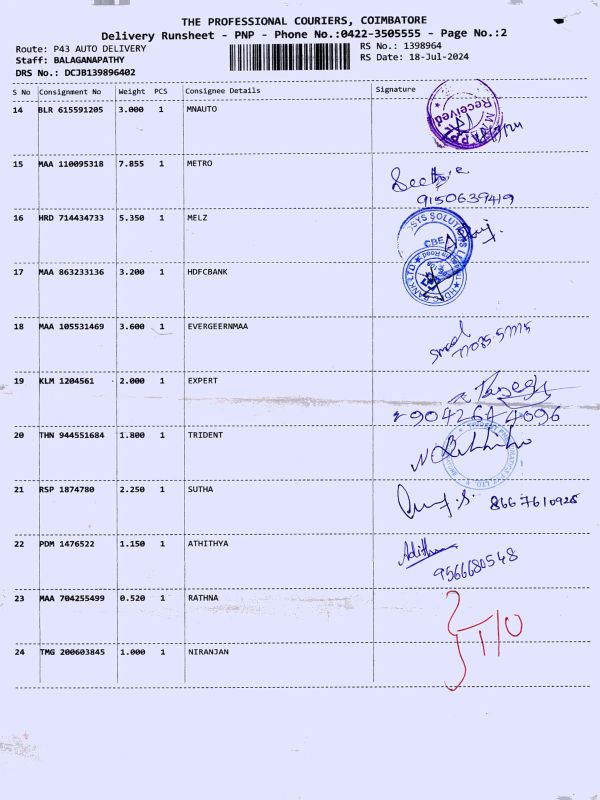 THE PROFESSIONAL COURIERS, COIMBATORE
Delivery Runsheet - PNP - Phone No.:0422-3505555 - Page No.:2
Route: P43 AUTO DELIVERY
Staff: BALAGANAPATHY
DRS No.: DCJB139896402
RS No.: 1398964
RS Date: 18-Jul-2024
S No Consignment No Weight PCS Consignee Details Signature
14 BLR 615591205 3.000 1 MNAUTO
Received
15 MAA 110095318 7.855 1 METRO
9150639419
16 HRD 714434733 5.350 1 MELZ
SYS SOLUTIONS
CBE
17 MAA 863233136 3.200 1 HDFCBANK
HDFC BANK LTD
18 MAA 105531469 3.600 1 EVERGEERNMAA
19 KLM 1204561 2.000 1 EXPERT
9042644096
20 THN 944551684 1.800 1 TRIDENT
21 RSP 1874780 2.250 1 SUTHA
8667610925
22 PDM 1476522 1.150 1 ATHITHYA
9566680548
23 MAA 704255499 0.520 1 RATHNA
T/O
24 TMG 200603845 1.000 1 NIRANJAN